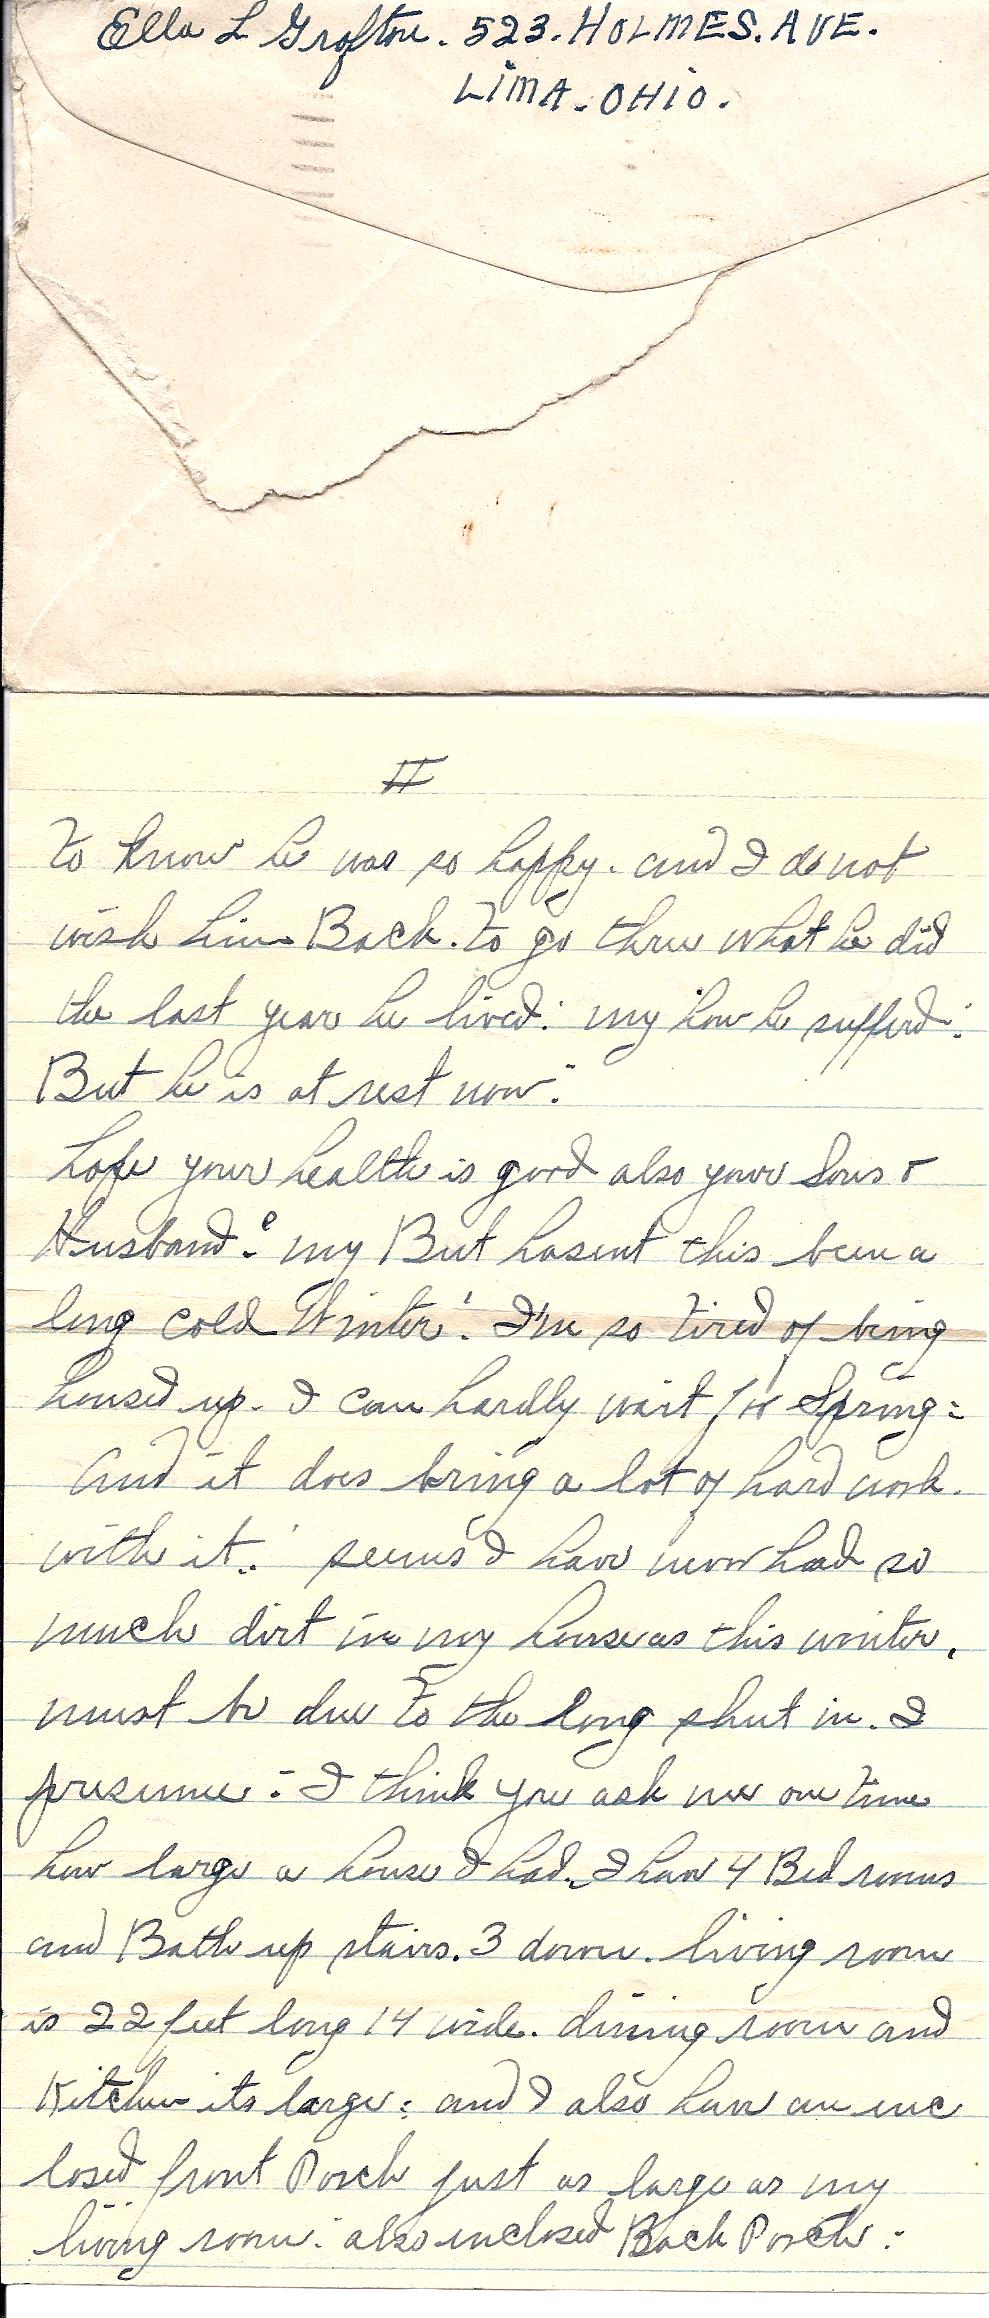 Ella L Grafton. 523. HOLMES. AVE.
LIMA. OHIO.
II
To know he was so happy. and I do not
wish him Back. To go thru what he did
the last year he lived. my how he sufferd.
But he is at rest now.
hope your health is good also your Sons &
Husband. my But hasent this been a
long cold Winter. I'm so tired of being
housed up. I can hardly wait for Spring:
and it does bring a lot of hard work.
with it. seems I have never had so
much dirt in my house as this winter,
must be due to the long shut in. I
presume. I think you ask me one time
how large a house I had. I have 4 Bed rooms
and Bath up stairs. 3 down. living room
is 22 feet long 14 wide. dining room and
Kitchen its large: and I also have an inc
losed front Porch just as large as my
living room. also inclosed Back Porch: